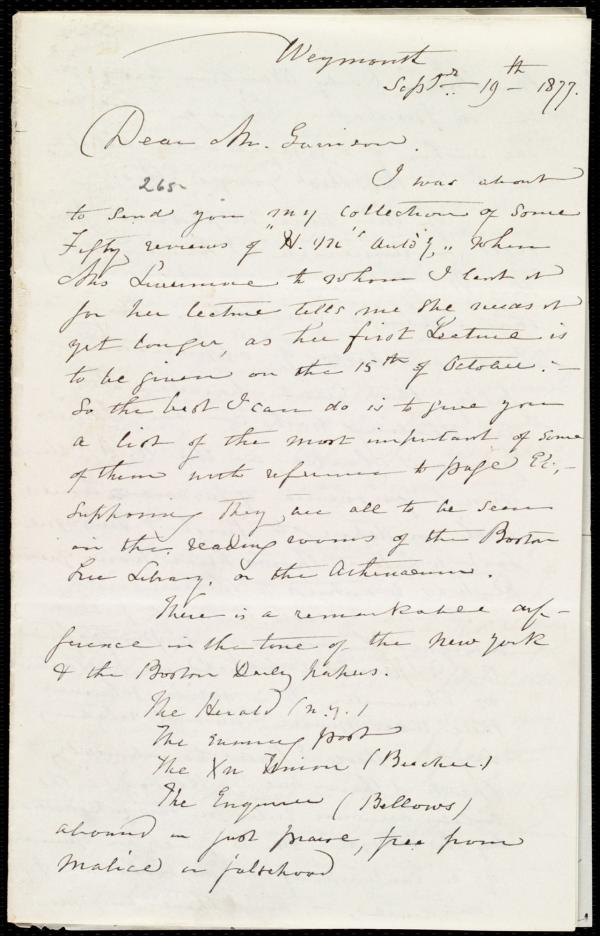 Weymouth
Septr. 19th - 1877.
Dear Mr. Garrison.
265
I was about
to send you my collection of some
Fifty reviews of "H. M's Auto'y," when
Mrs Livermore to whom I lent it
for her lecture tells me she needs it
yet longer, as her first Lecture is
to be given on the 15th of October. -
So the best I can do is to give you
a list of the most important of some
of them with reference to page &c, -
supposing they are all to be seen
in the reading rooms of the Boston
Free Library, or the Athenaeum.
There is a remarkable dif-
ference in the tone of the New York
& the Boston Daily papers.
The Herald (N.Y.)
The Evening post
The Xn Union (Beecher)
The Enquirer (Bellows)
abound in just praise, free from
malice or falsehood